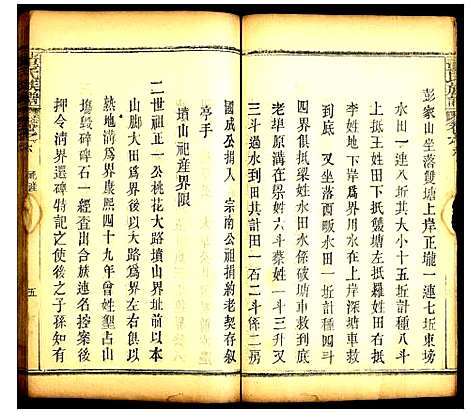 彭家山坐落雙塘上岸正壠一連七坵東塝
水田一連八坵其大小十五坵計種八斗
上抵王姓田下抵𥖄塘左抵熊姓田右抵
李姓田為界用水在上岸長塘車救
四界俱抵梁姓水田作種水車救到底
老埠原溝在梁姓六斗蔡姓一斗三升又
到底 又坐落酉畈水田一坵計種四斗
三過水到田共計田一石二斗係二房
國成公捐入 宗南公祖捐約老契存叙
亭手
墳山祀產界限
二世祖正一公桃花大路墳山界址前以本
山脚大田為界後以大路為界左右俱以
熟地溝為界康熙四十九年曾姓塹占山
塝毀碑碑石一經查出合族連名控案後
押令清界還碑特記之使後之子孫知有
五